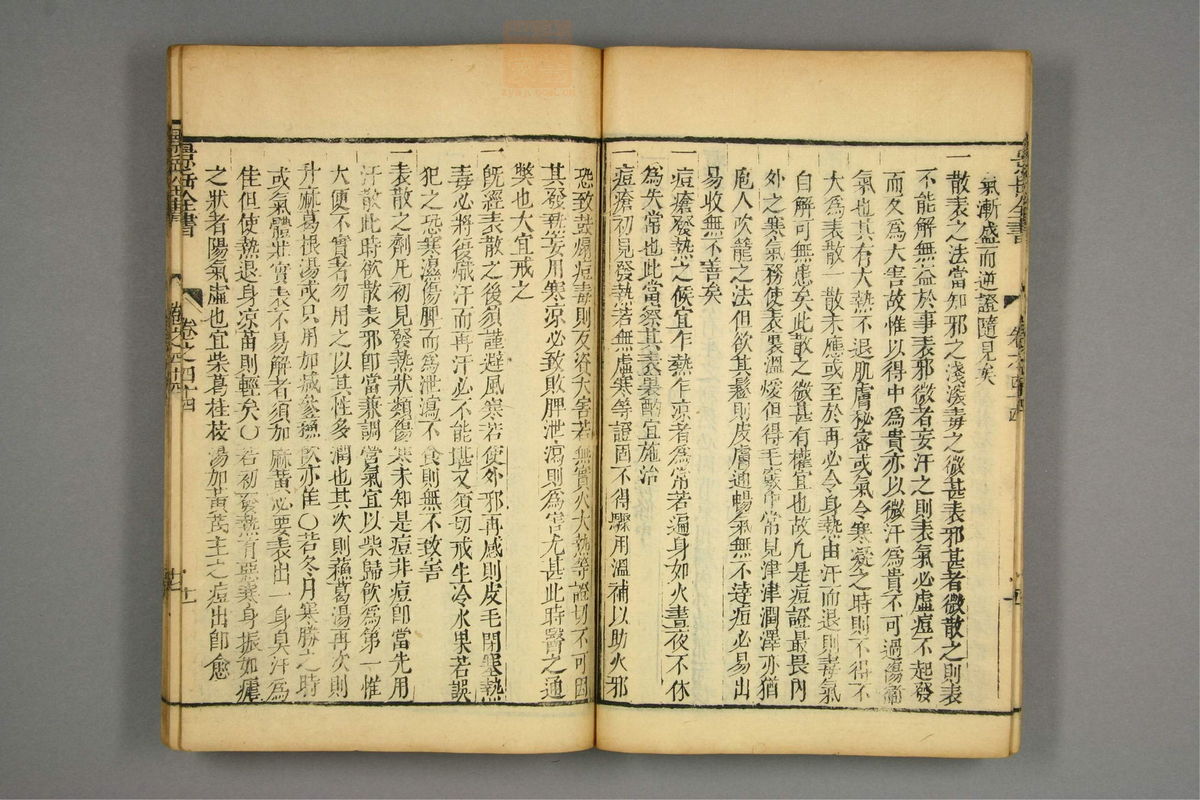 氣漸盛而逆證隨見矣
一散表之法當知邪之淺深毒之微甚表邪甚者微散之則表
不能解無益於事表邪微者妄汗之則表氣必虛痘不起發
而反為大害故惟以得中為貴亦以微汗為貴不可過傷衛
氣也其有大熱不退肌膚秘密或氣令寒凝之時則不得不
大為表散一散未應或至於再必令身熱由汗而退則毒氣
自解可無患矣此散之微甚有權宜也故凡是痘證最畏內
外之寒氣務使表裏溫煖但得毛竅中常見津津潤澤亦猶
庖人吹籠之法但欲其鬆則皮膚通暢氣無不達痘必易出
易收無不善矣
一痘瘡發熱之候宜乍熱乍凉者為常若遍身如火晝夜不休
為失常也此當察其表裏酌宜施治
一痘瘡初見發熱若無虛寒等證固不得驟用溫補以助火邪
恐致鼓煽痘毒則反咨大害若無實火大熱等證切不可因
其發熱妄用寒凉必致敗脾泄瀉則為害尤甚此時醫之通
弊也大宜戒之
一既經表散之後須謹避風寒若使外邪再感則皮毛閉塞熱
毒必將復熾汗而再汗必不能堪又須切戒生冷水果若誤
犯之恐寒濕傷脾而為泄瀉不食則無不致害
一表散之劑凡初見發熱狀類傷寒未知是痘非痘即當先用
汗散此時欲散表邪即當兼調營氣宜以柴歸飲為第一惟
大便不實者勿用之以其性多潤也其次則蘓葛湯再次則
升麻葛根湯或只用加減參蘓飲亦佳〇若冬月寒勝之時
或氣體壯實表不易解者須加麻黃必要表出一身臭汗為
佳但使熱退身凉苗則輕矣〇若初發熱有惡寒身振如瘧
之狀者陽氣虛也宜柴葛桂枝湯加黃芪主之痘出即愈
景岳全書
卷之四十四
十一